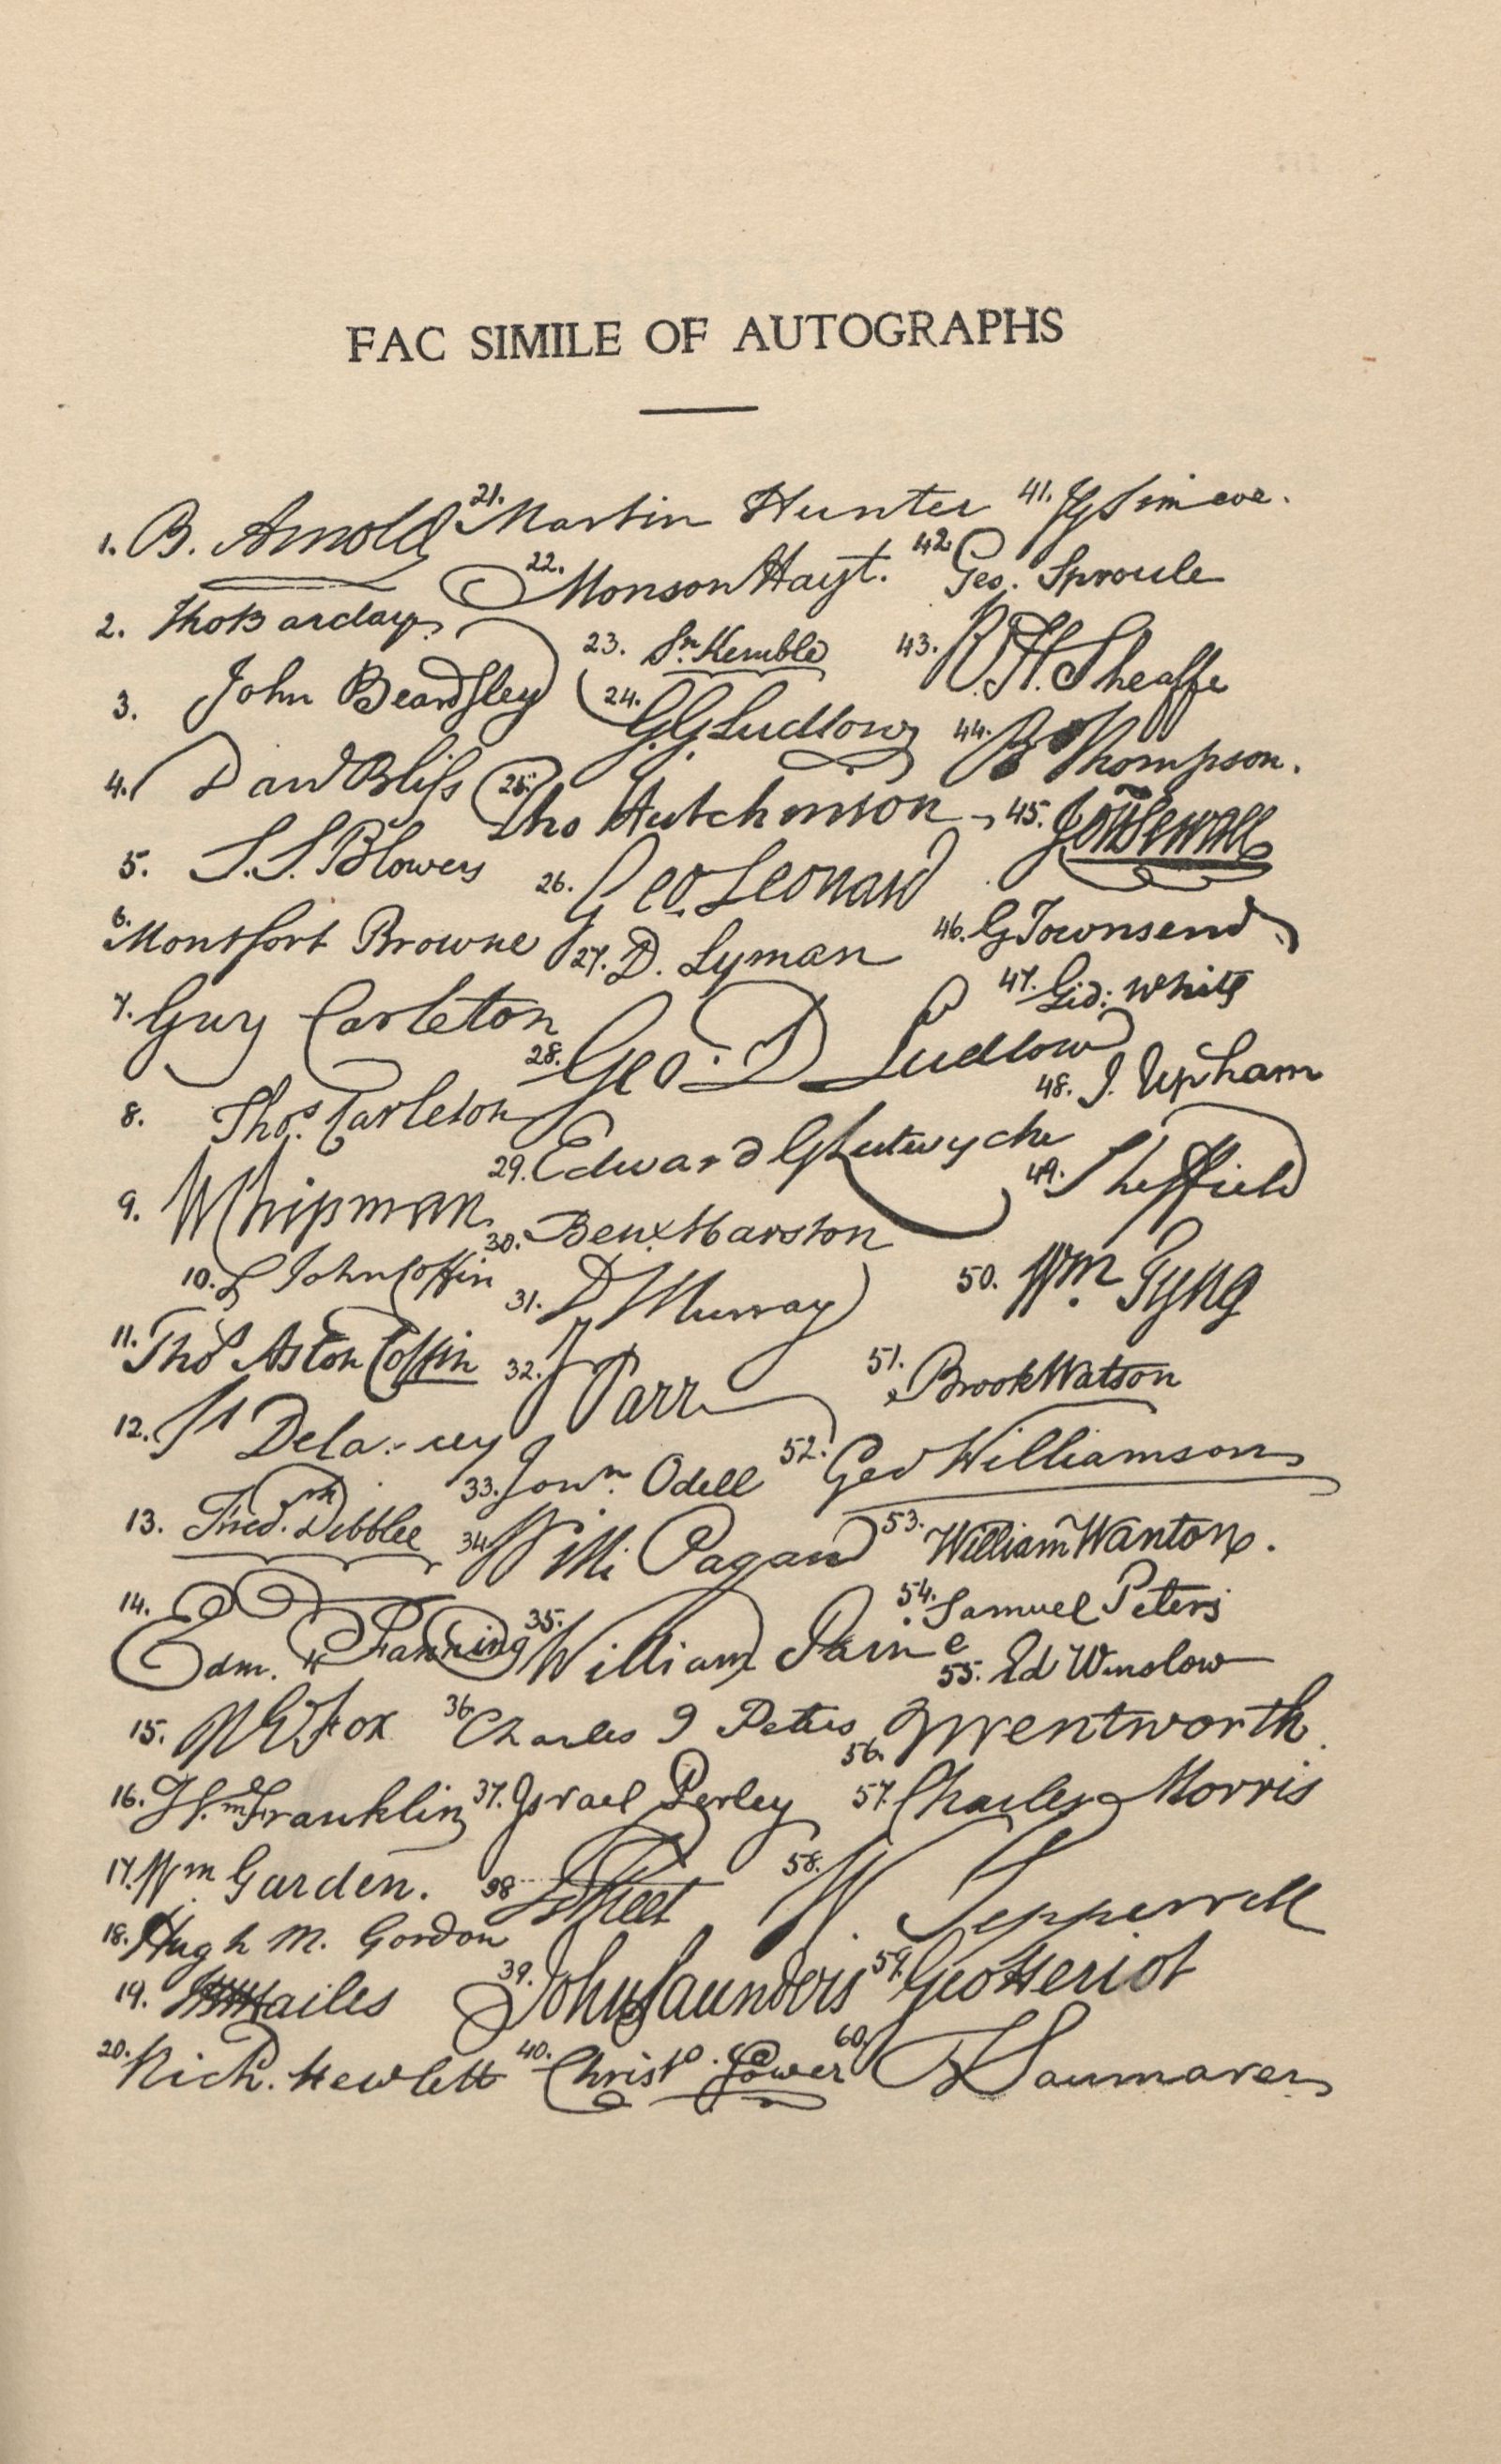 FAC SIMILE OF AUTOGRAPHS
1. B. Arnold
2. Tho Barclay.
3. John Beardsley
4. Danl Bliss
5. S. S. Blowers
6. Montfort Browne
7. Guy Carleton
8. Thos. Carleton
9. W Chipman
10. John Coffin
11. Thos Aston Coffin
12. Delancey
13. Fred. Dibblee
14. Edm. Fanning
15. Fox
16. Wm. Franklin
17. Wm Garden.
18. Hugh M. Gordon
19. Hailes
20. Richd. Hewlett
21. Martin Hunter
22. Monson Hayt.
23. Sr. Kemble
24. G. G. Ludlow
25. Tho Hutchinson
26. Geo. Leonard
27. D. Lyman
28. Geo. D Ludlow
29. Edward G Lutwyche
30. Benj. Marston
31. D Murray
32. J Parr
33. Jonn. Odell
34. Willi Pagan
35. William Paine
36. Charles J Peters
37. Israel Perley
38. Street
39. John Saunders
40. Christo. Sower
41. JG Simcoe.
42. Geo. Sproule
43. R. H. Sheaffe
44. B Thompson.
45. Jon Sewall
46. G Townsend
47. Gid: White
48. J. Upham
49. Sheffield
50. Wm. Tyng
51. Brook Watson
52. Geo Williamson
53. William Wanton.
54. Samuel Peters
55. Ed Winslow
56. J Wentworth
57. Charles Morris
58. W. Pepperrell
59. Geo Heriot
60. T Saumarez